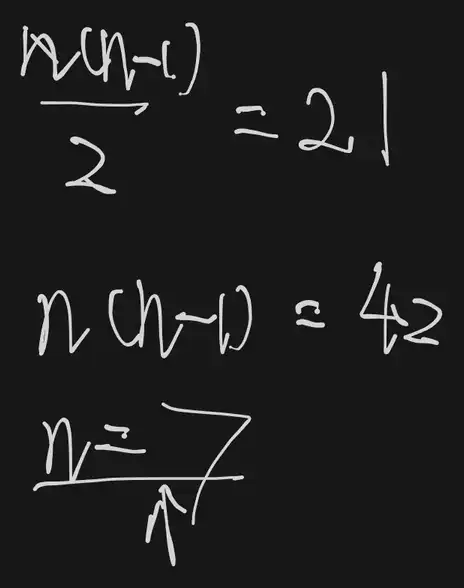 n(n-1)/2 = 21
n(n-1) = 42
n = 7
↑